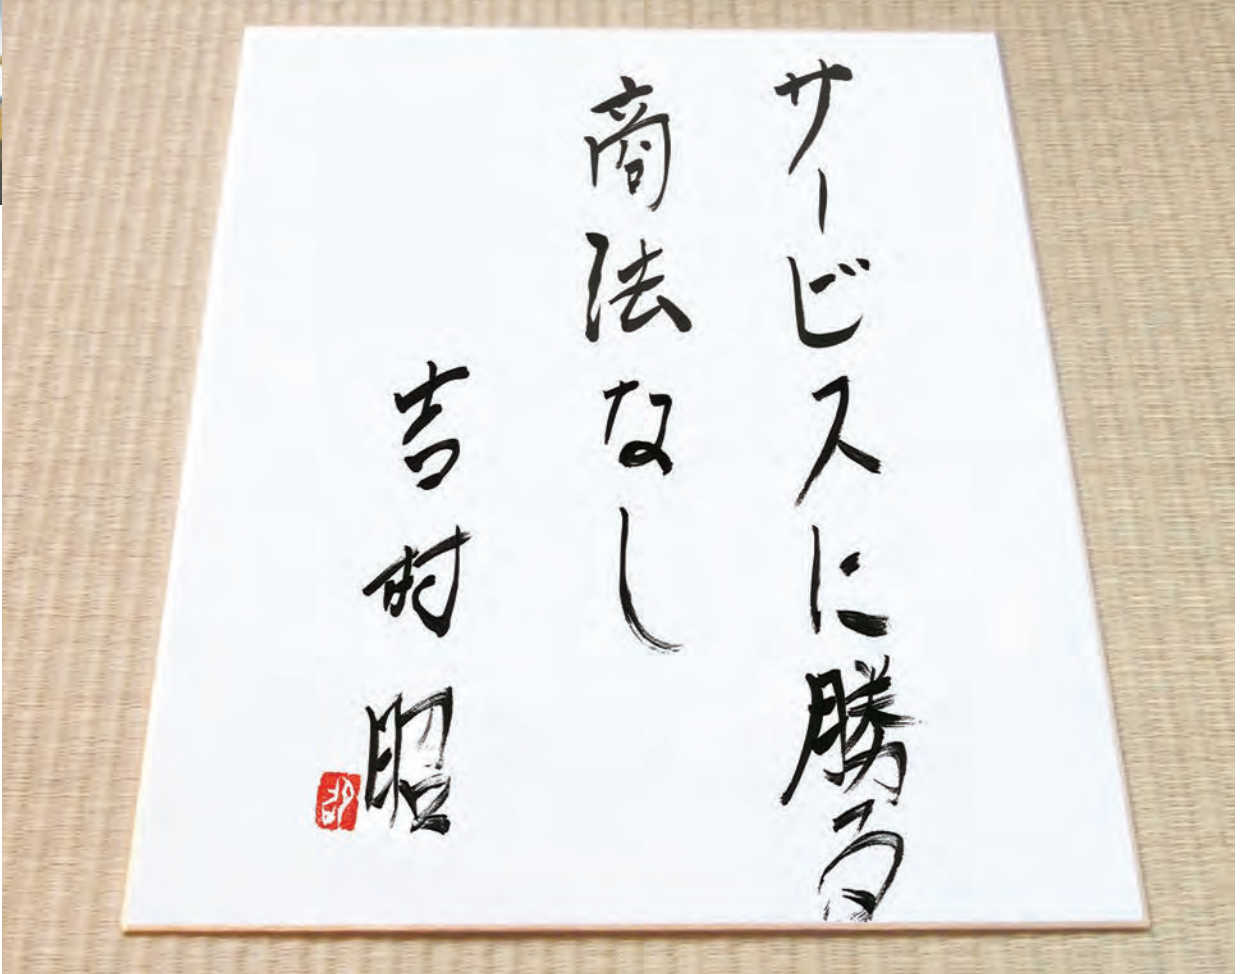 サービスに勝る
商法なし
吉村昭